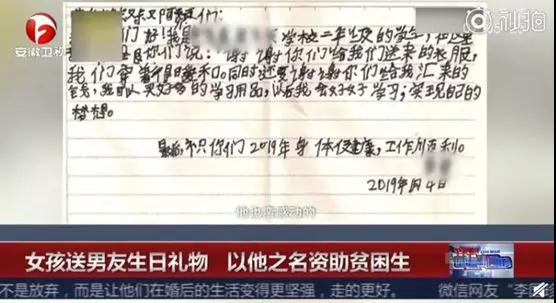 安徽卫视
秒拍
们好!我是 学校二年级的学生,
你们说:谢谢你们给我们送来的衣服,
我们穿着新的暖和。同时还要谢谢你们给我汇来的
钱,我可以买好多的学习用品,以后我会好好学习;实现自己的
梦想。
最后,祝你们2019年身体健康,工作顺利。
2019年 月4日
他也蛮感动的
女孩送男友生日礼物 以他之名资助贫困生
不是放弃,而是让他们在婚后的生活变得更坚强,走的更好。
微信网友“李